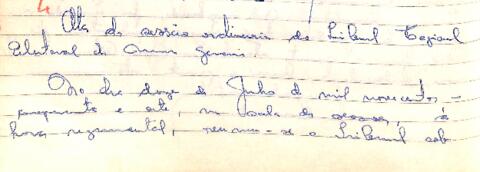 Ata da sessão ordinaria do Tribunal Regional
Eleitoral de Minas Gerais.
No dia doze de Junho de mil novecentos -
cinquenta e oito, na sala de sessoes, á
hora regimental, reuniu-se o Tribunal sob